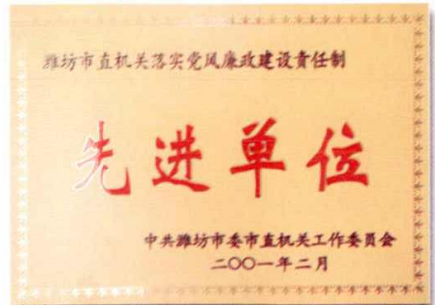 潍坊市直机关落实党风廉政建设责任制
先进单位
中共潍坊市委市直机关工作委员会
二〇〇一年二月